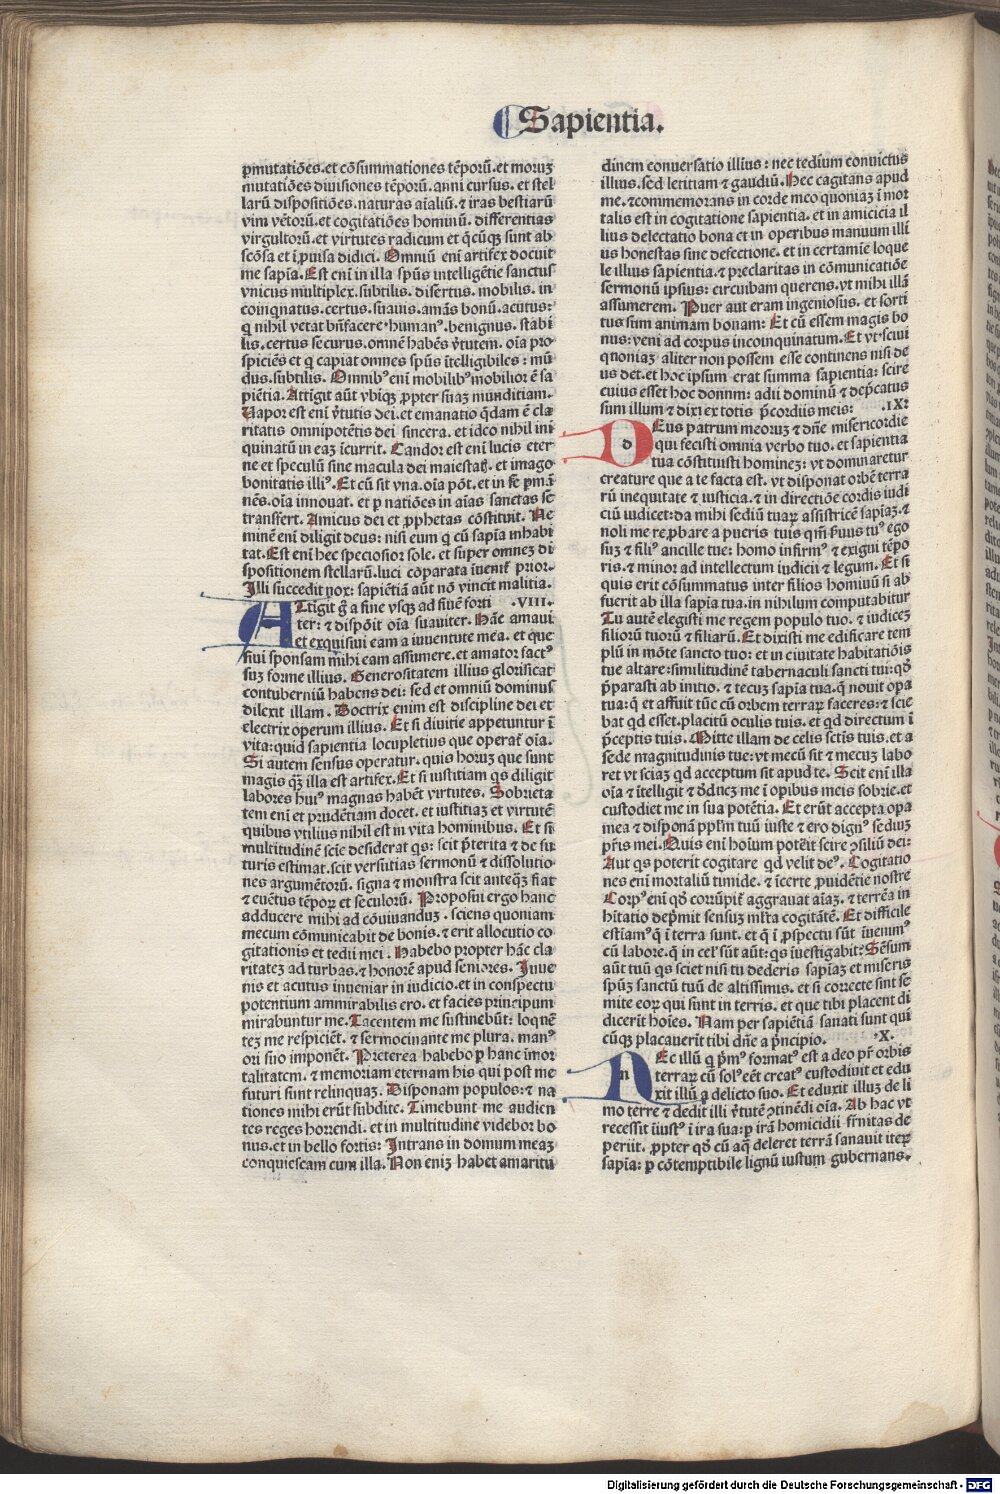 Sapientia.
ꝑmutatiões.et cõsummationes tẽporũ.et moruꝫ
mutatiões diuisiones tẽporũ.anni cursus. et stel
larũ dispositiões.naturas aĩaliũ.⁊ iras bestiarũ
vim vẽtorũ.et cogitatiões hominũ. differentias
virgultorũ.et virtutes radicum et q̃cũqꝫ sunt ab
scõsa et ĩprouisa didici. Omniũ enĩ artifex docuit
me sapĩa. Est enĩ in illa spũs intelligẽtie sanctus
vnicus multiplex.subtilis. disertus. mobilis. in
coinqnatus.certus.suauis.amãs bonũ.acutus:
q nihil vetat bñfacere.humanꝰ.benignus. stabi
lis.certus securus.omnẽ habẽs v̾tutem. oĩa pro
spiciẽs et q capiat omnes spũs ĩtelligibiles: mũ
dus.subtilis. Omnibꝰ enĩ mobilibꝰ mobilior ẽ sa
piẽtia. Attigit aũt vbiqꝫ ꝓpter suaꝫ munditiam.
Uapor est enĩ v̾tutis dei.et emanatio q̃dam ẽ cla
ritatis omnipotẽtis dei sincera. et ideo nihil ini
quinatũ in eaꝫ ĩcurrit. Candor est enĩ lucis eter
ne et speculũ sine macula dei maiestaꝭ. et imago
bonitatis illiꝰ. Et cũ sit vna.oĩa põt. et in se ꝑmã
nẽs.oĩa innouat. et ꝑ natiões in aĩas sanctas se
transfert. Amicus dei et ꝓphetas cõstituit. Ne
minẽ enĩ diligit deus: nisi eum q cũ sapĩa inhabi
tat.Est enĩ hec speciosior sole. et super omneꝫ di
spositionem stellarũ.luci cõparata ĩuenit̃ prior.
Illi succedit nox: sapiẽtiã aũt nõ vincit malitia.
Attigit g̃ a fine vsqꝫ ad finẽ forti .VIII.
ter: ⁊ dispõit oĩa suauiter. Hãc amaui
et exquisiui eam a iuuentute mea. et que
siui sponsam mihi eam assumere.et amator factꝰ
suꝫ forme illius. Generositatem illius glorificat
contuberniũ habens dei: sed et omniũ dominus
dilexit illam. Doctrix enim est discipline dei et
electrix operum illius. Et si diuitie appetuntur ĩ
vita:quid sapientia locupletius que operat̃ oĩa.
Si autem sensus operatur. quis horuꝫ que sunt
magis qꝫ̃ illa est artifex. Et si iustitiam qs diligit
labores huiꝰ magnas habẽt virtutes. Sobrieta
tem enĩ et prudẽtiam docet. et iustitiaꝫ et virtutẽ
quibus vtilius nihil est in vita hominibus. Et si
multitudinẽ scie desiderat qs: scit p̃terita ⁊ de fu
turis estimat.scit versutias sermonũ ⁊ dissolutio
nes argumẽtorũ. signa ⁊ monstra scit anteqꝫ̃ fiãt
⁊ euẽtus tẽpoꝝ et seculorũ. Proposui ergo hanc
adducere mihi ad cõuiuanduꝫ . sciens quoniam
mecum cõmunicabit de bonis. ⁊ erit allocutio co
gitationis et tedii mei . Habebo propter hãc cla
ritateꝫ ad turbas.⁊ honorẽ apud seniores. Iuue
nis et acutus inueniar in iudicio.et in conspectu
potentium ammirabilis ero. et facies principum
mirabuntur me. Tacentem me sustinebũt: loqnẽ
teꝫ me respiciẽt. ⁊ sermocinante me plura. manꝰ
ori suo imponẽt. Preterea habebo ꝑ hanc ĩmor
talitatem. ⁊ memoriam eternam his qui post me
futuri sunt relinquaꝫ. Disponam populos: ⁊ na
tiones mihi erũt subdite. Timebunt me audien
tes reges horrendi. et in multitudine videbor bo
nus.et in bello fortis: Intrans in domum meaꝫ
conquiescam cum illa. Non eniꝫ habet amaritu
dinem conuersatio illius: nec tedium conuictus
illius.sed letitiam ⁊ gaudiũ. Hec cagitans apud
me.⁊commemorans in corde meo quoniaꝫ ĩmor
talis est in cogitatione sapientia. et in amicicia il
lius delectatio bona et in operibus manuum illi
us honestas sine defectione. et in certamĩe loque
le illius sapientia.⁊ preclaritas in cõmunicatiõe
sermonũ ipsius: circuibam querens.vt mihi illã
assumerem. Puer aut eram ingeniosus. et sorti
tus sum animam bonam: Et cũ essem magis bo
nus: veni ad corpus incoinquinatum. Et vt sciui
quoniaꝫ aliter non possem esse continens nisi de
us det.et hoc ipsum erat summa sapientia: scire
cuius esset hoc donum: adii dominũ ⁊ dep̃catus
sum illum ⁊ dixi ex totis p̃cordiis meis: .IX.
Deus patrum meoruꝫ ⁊ dñe misericordie
qui fecisti omnia verbo tuo. et sapientia
tua cõstituisti homineꝫ: vt dominaretur
creature que a te facta est. vt disponat orbẽ terra
rũ inequitate ⁊ iusticia.⁊ in directiõe cordis iudi
ciũ iudicet:da mihi sediũ tuaꝝ assistricẽ sapĩaꝫ.⁊
noli me reꝓbare a pueris tuis qm̃ s̃uus tuꝰ ego
suꝫ ⁊ filiꝰ ancille tue: homo infirmꝰ ⁊ exigui tẽpo
ris.⁊ minor ad intellectum iudicii ⁊ legum. Et si
quis erit cõsummatus inter filios hominũ si ab
fuerit ab illa sapĩa tua.in nihilum computabitur
Tu autẽ elegisti me regem populo tuo. ⁊ iudiceꝫ
filiorũ tuorũ ⁊ filiarũ. Et dixisti me edificare tem
plũ in mõte sancto tuo: et in ciuitate habitatiõis
tue altare:similitudinẽ tabernaculi sancti tui: qð
p̃parasti ab initio. ⁊ tecuꝫ sapĩa tua.q̃ nouit oꝑa
tua:q̃ et affuit tũc cũ orbem terraꝝ faceres:⁊ scie
bat qd esset.placitũ oculis tuis. et qd directum ĩ
p̃ceptis tuis. Mitte illam de celis sctis tuis.et a
sede magnitudinis tue: vt mecũ sit ⁊ mecuꝫ labo
ret vt sciaꝫ qd acceptum sit apud te. Scit enĩ illa
oĩa ⁊ ĩtelligit ⁊ ðducꝫ me ĩ opibus meis sobrie.et
custodiet me in sua potẽtia. Et erũt accepta oꝑa
mea ⁊ disponã pplm̃ tuũ iuste ⁊ ero dignꝰ sediuꝫ
pr̃is mei. Quis enĩ hoĩum poterit scire ꝯsiliũ dei:
Aut qs poterit cogitare qd velit deꝰ. Cogitatio
nes enĩ mortaliũ timide. ⁊ ĩcerte ꝓuidẽtie nostre
Corpꝰ enĩ qð corrũpit̃ aggrauat aĩaꝫ. ⁊ terrẽa in
hitatio dep̃mit sensuꝫ ml̃ta cogitãtẽ. Et difficile
estĩamꝰ q̃ ĩ terra sunt. et q̃ ĩ ꝓspectu sũt ĩuenimꝰ
cũ labore.q̃ in cel̃ sũt aũt: qs ĩuestigabit: Sẽsum
aũt tuũ qs sciet nisi tu dederis sapĩaꝫ et miseris
spũꝫ sanctũ tuũ de altissimis. et si correcte sint se
mite eoꝝ qui sunt in terris. et que tibi placent di
dicerit hoĩes. Nam per sapiẽtiã sanati sunt qui
cũqꝫ placauerit tibi dñe a p̃ncipio. .X.
Hec illũ q p̃mꝰ formatꝰ est a deo pr̃ orbis
terraꝝ cũ solꝰ eẽt creatꝰ custodiuit et edu
xit illũ a delicto suo. Et eduxit illuꝫ de li
mo terre ⁊ dedit illi v̾tutẽ ꝯtinẽdi oĩa. Ab hac vt
recessit ĩiustꝰ ĩ ira sua: ꝑ irã homicidii fr̃nitas de
periit. ꝓpter qð cũ aq̃ deleret terrã sanauit iteꝝ
sapĩa: ꝑ cõtemptibile lignũ iustum gubernans.
Digitalisierung gefördert durch die Deutsche Forschungsgemeinschaft - DFG